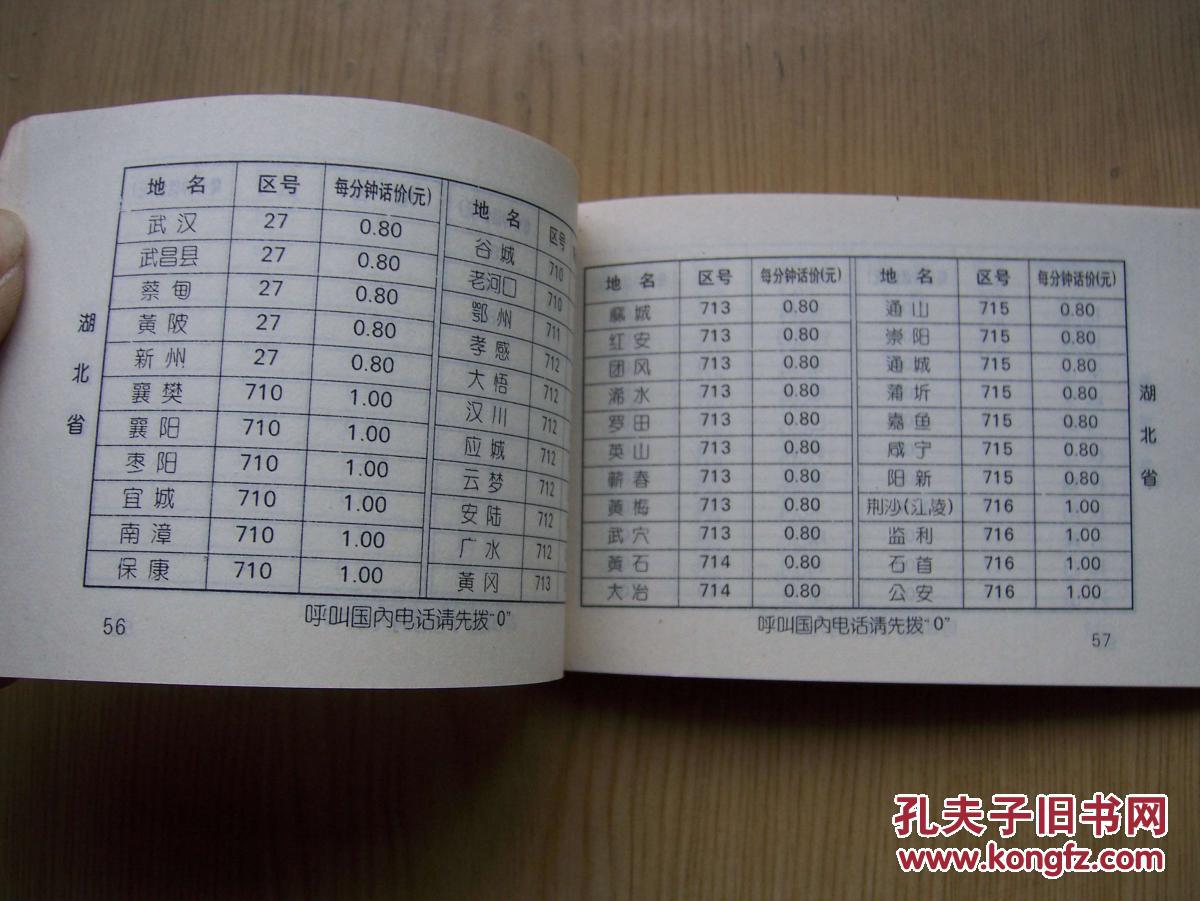 湖北省
地 名 区号 每分钟话价(元) 地 名 区号
武 汉 27 0.80 谷 城 710
武昌县 27 0.80 老河口 710
蔡 甸 27 0.80 鄂 州 711
黄 陂 27 0.80 孝 感 712
新 州 27 0.80 大 悟 712
襄 樊 710 1.00 汉 川 712
襄 阳 710 1.00 应 城 712
枣 阳 710 1.00 云 梦 712
宜 城 710 1.00 安 陆 712
南 漳 710 1.00 广 水 712
保 康 710 1.00 黄 冈 713
呼叫国内电话请先拨"0"
56
地 名 区号 每分钟话价(元) 地 名 区号 每分钟话价(元)
麻 城 713 0.80 通 山 715 0.80
红 安 713 0.80 崇 阳 715 0.80
团 风 713 0.80 通 城 715 0.80
浠 水 713 0.80 蒲 圻 715 0.80
罗 田 713 0.80 嘉 鱼 715 0.80
英 山 713 0.80 咸 宁 715 0.80
蕲 春 713 0.80 阳 新 715 0.80
黄 梅 713 0.80 荆沙(江陵) 716 1.00
武 穴 713 0.80 监 利 716 1.00
黄 石 714 0.80 石 首 716 1.00
大 冶 714 0.80 公 安 716 1.00
湖北省
呼叫国内电话请先拨"0"
57
孔夫子旧书网
www.kongfz.com